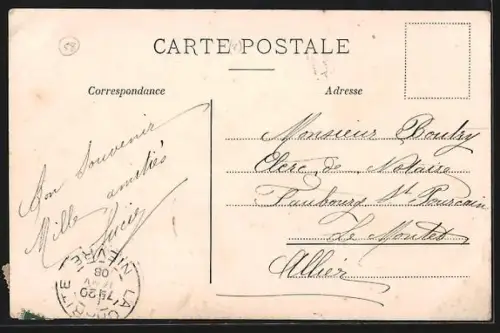 CARTE POSTALE
Correspondance
Adresse
Bon Souvenir
Mille amitiés
Lucie
Monsieur Boutry
Clerc de Notaire
Faubourg St Pourçain
Le Montet
Allier
LA
NIÈVRE
7 20
08